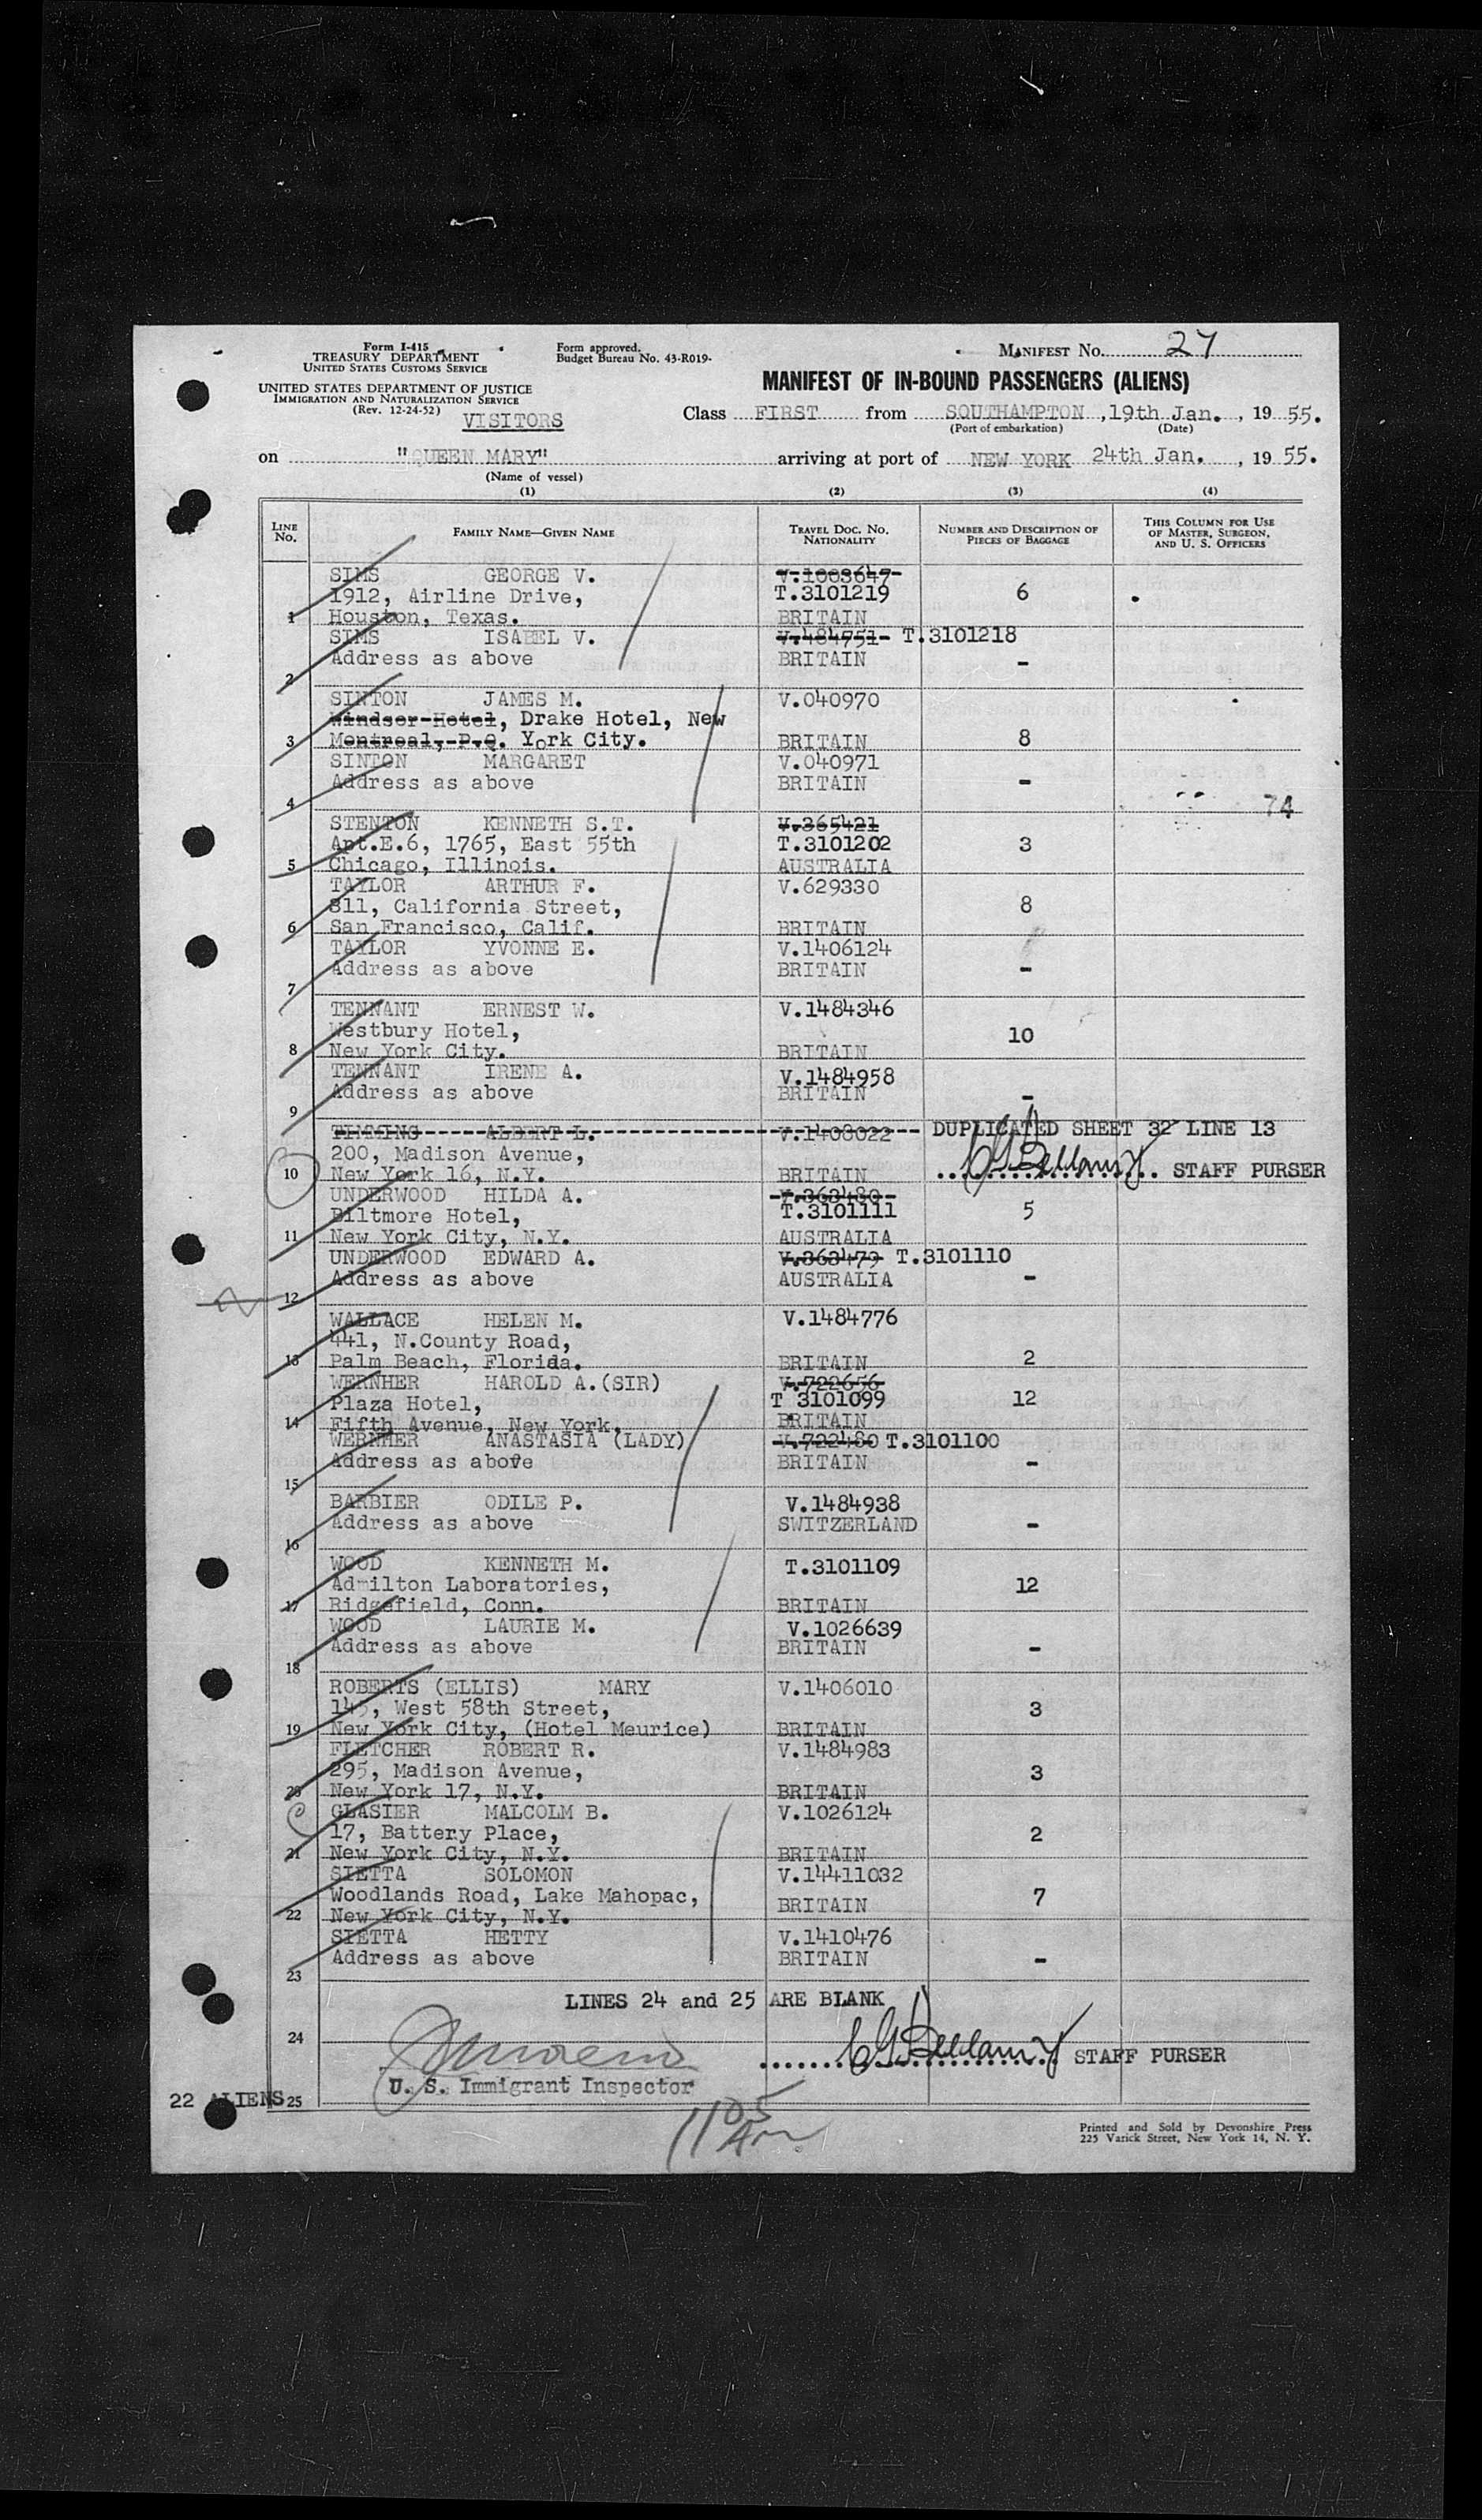 Form I-415
TREASURY DEPARTMENT
UNITED STATES CUSTOMS SERVICE
Form approved.
Budget Bureau No. 43-R019-
MANIFEST No. 27
UNITED STATES DEPARTMENT OF JUSTICE
IMMIGRATION AND NATURALIZATION SERVICE
(Rev. 12-24-52)
VISITORS
MANIFEST OF IN-BOUND PASSENGERS (ALIENS)
Class FIRST from SOUTHAMPTON, 19th Jan., 1955.
(Port of embarkation) (Date)
on "QUEEN MARY" arriving at port of NEW YORK 24th Jan., 1955.
(Name of vessel)
(1) (2) (3) (4)
LINE No. FAMILY NAME—GIVEN NAME TRAVEL DOC. No. NATIONALITY NUMBER AND DESCRIPTION OF PIECES OF BAGGAGE THIS COLUMN FOR USE OF MASTER, SURGEON, AND U. S. OFFICERS
SIMS GEORGE V. V.1003647
1912, Airline Drive, T.3101219 6
1 Houston, Texas. BRITAIN
SIMS ISABEL V. V.484751- T.3101218
Address as above BRITAIN -
2
SINTON JAMES M. V.040970
Windsor Hotel, Drake Hotel, New
3 Montreal, P.Q. York City. BRITAIN 8
SINTON MARGARET V.040971
Address as above BRITAIN -
4 74
STENTON KENNETH S.T. V.365421
Apt.E.6, 1765, East 55th T.3101202 3
5 Chicago, Illinois. AUSTRALIA
TAYLOR ARTHUR F. V.629330
811, California Street, 8
6 San Francisco, Calif. BRITAIN
TAYLOR YVONNE E. V.1406124
Address as above BRITAIN -
7
TENNANT ERNEST W. V.1484346
Westbury Hotel, 10
8 New York City. BRITAIN
TENNANT IRENE A. V.1484958
Address as above BRITAIN -
9
TIMMING ALBERT L. V.1408022 DUPLICATED SHEET 32 LINE 13
200, Madison Avenue,
10 New York 16, N.Y. BRITAIN CGBellamy STAFF PURSER
UNDERWOOD HILDA A. V.363480
Biltmore Hotel, T.3101111 5
11 New York City, N.Y. AUSTRALIA
UNDERWOOD EDWARD A. V.363479 T.3101110
Address as above AUSTRALIA -
12
WALLACE HELEN M. V.1484776
441, N.County Road,
13 Palm Beach, Florida. BRITAIN 2
WERNHER HAROLD A.(SIR) V.722656
Plaza Hotel, T 3101099 12
14 Fifth Avenue, New York. BRITAIN
WERNHER ANASTASIA (LADY) V.722480 T.3101100
Address as above BRITAIN -
15
BARBIER ODILE P. V.1484938
Address as above SWITZERLAND -
16
WOOD KENNETH M. T.3101109
Admilton Laboratories, 12
17 Ridgefield, Conn. BRITAIN
WOOD LAURIE M. V.1026639
Address as above BRITAIN -
18
ROBERTS (ELLIS) MARY V.1406010
145, West 58th Street, 3
19 New York City, (Hotel Meurice) BRITAIN
FLETCHER ROBERT R. V.1484983
295, Madison Avenue, 3
20 New York 17, N.Y. BRITAIN
GLASIER MALCOLM B. V.1026124
17, Battery Place, 2
21 New York City, N.Y. BRITAIN
SIETTA SOLOMON V.14411032
Woodlands Road, Lake Mahopac, BRITAIN 7
22 New York City, N.Y.
SIETTA HETTY V.1410476
Address as above BRITAIN -
23
LINES 24 and 25 ARE BLANK
24
CGBellamy STAFF PURSER
U. S. Immigrant Inspector
22 ALIENS 25
1105 AM
Printed and Sold by Devonshire Press
225 Varick Street, New York 14, N. Y.